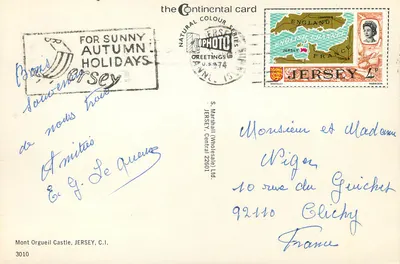 the Continental card
FOR SUNNY
AUTUMN
HOLIDAYS
Jersey
NATURAL COLOUR SERIES
PHOTO
GREETINGS
ENGLAND
JERSEY
FRANCE
JERSEY
Bons
souvenirs
de nous trois
Amitiés
E. G. Le Quesne
S. Marshall (Wholesale) Ltd.
JERSEY, Central 22501
Monsieur et Madame
Niger
10 rue du Guichet
92110 Clichy
France
Mont Orgueil Castle, JERSEY, C.I.
3010